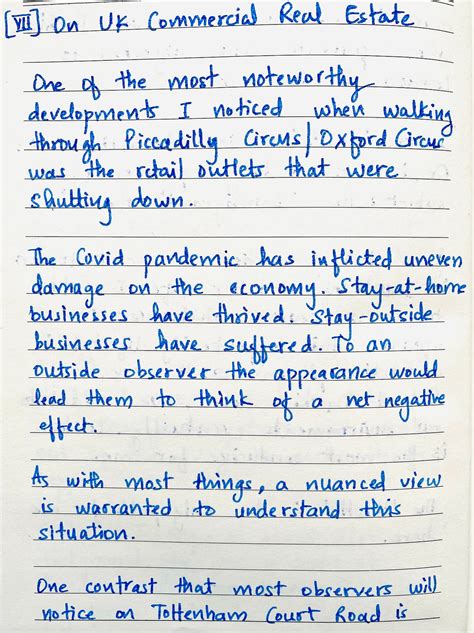 [VII] On UK Commercial Real Estate
One of the most noteworthy
developments I noticed when walking
through Piccadilly Circus/Oxford Circus
was the retail outlets that were
shutting down.
The Covid pandemic has inflicted uneven
damage on the economy. Stay-at-home
businesses have thrived. Stay-outside
businesses have suffered. To an
outside observer the appearance would
lead them to think of a net negative
effect.
As with most things, a nuanced view
is warranted to understand this
situation.
One contrast that most observers will
notice on Tottenham Court Road is